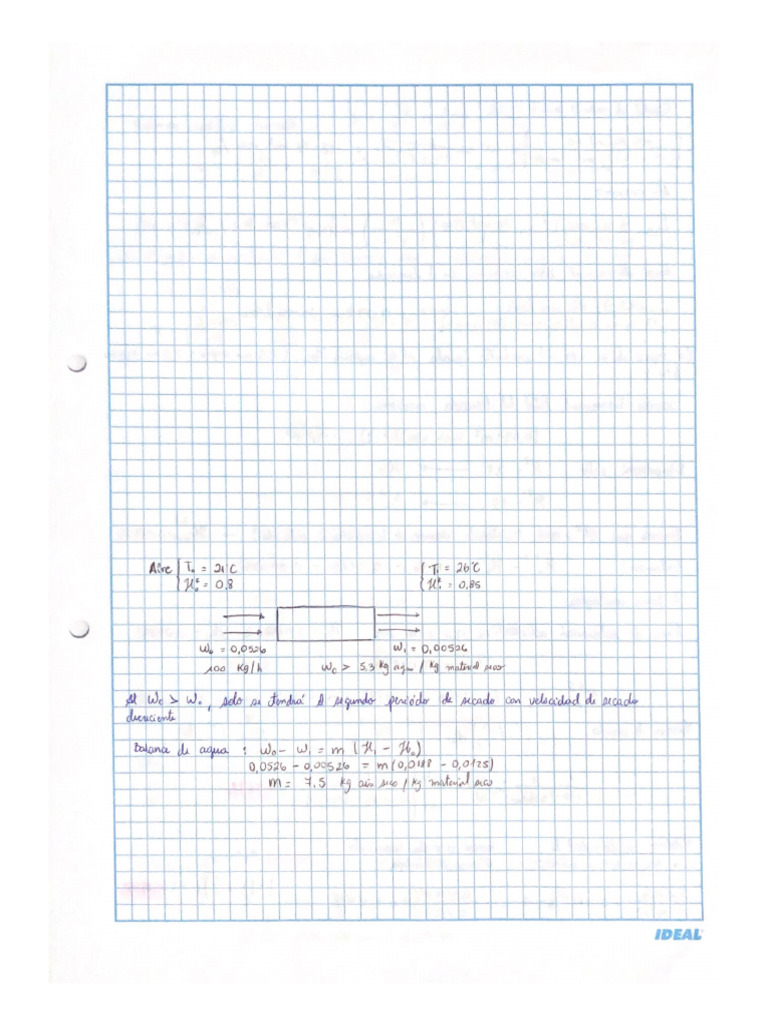 Aire { T₀ = 21°C { T₁ = 26°C
ℋ₀ᴿ = 0,8 ℋ₁ᴿ = 0,85
W₀ = 0,0526 W₁ = 0,00526
100 Kg/h Wc > 5.3 kg agua / kg material seco
Al Wc > W₀, solo se tendrá el segundo periódo de secado con velocidad de secado
decreciente
Balance de agua : W₀ - W₁ = m (ℋ₁ - ℋ₀)
0,0526 - 0,00526 = m (0,0188 - 0,0125)
m = 7.5 kg aire seco / kg material seco
IDEAL